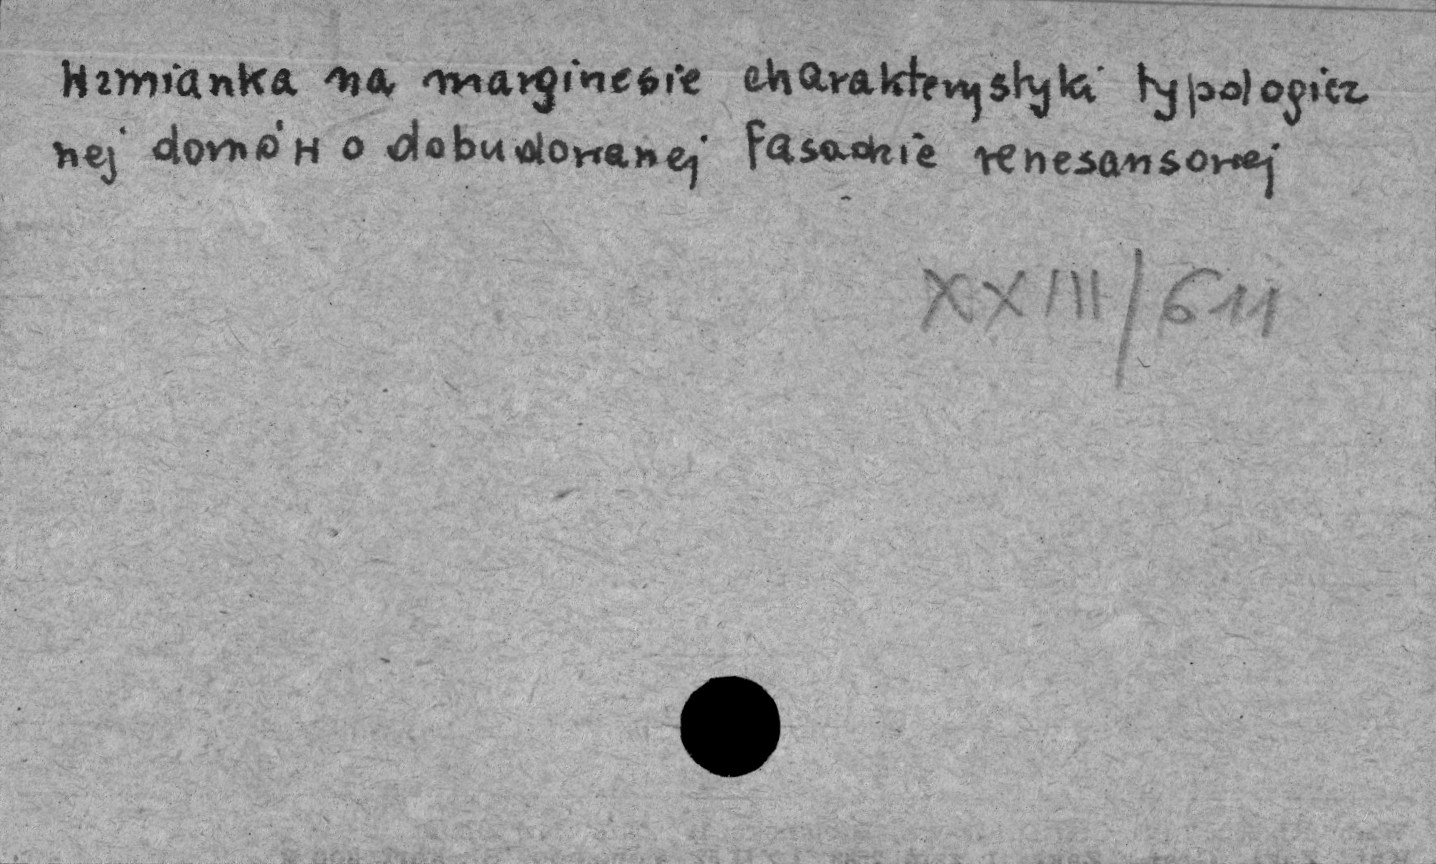 Wzmianka na marginesie charakterystyki typologicz
nej domów o dobudowanej fasadzie renesansowej
XXIII/611